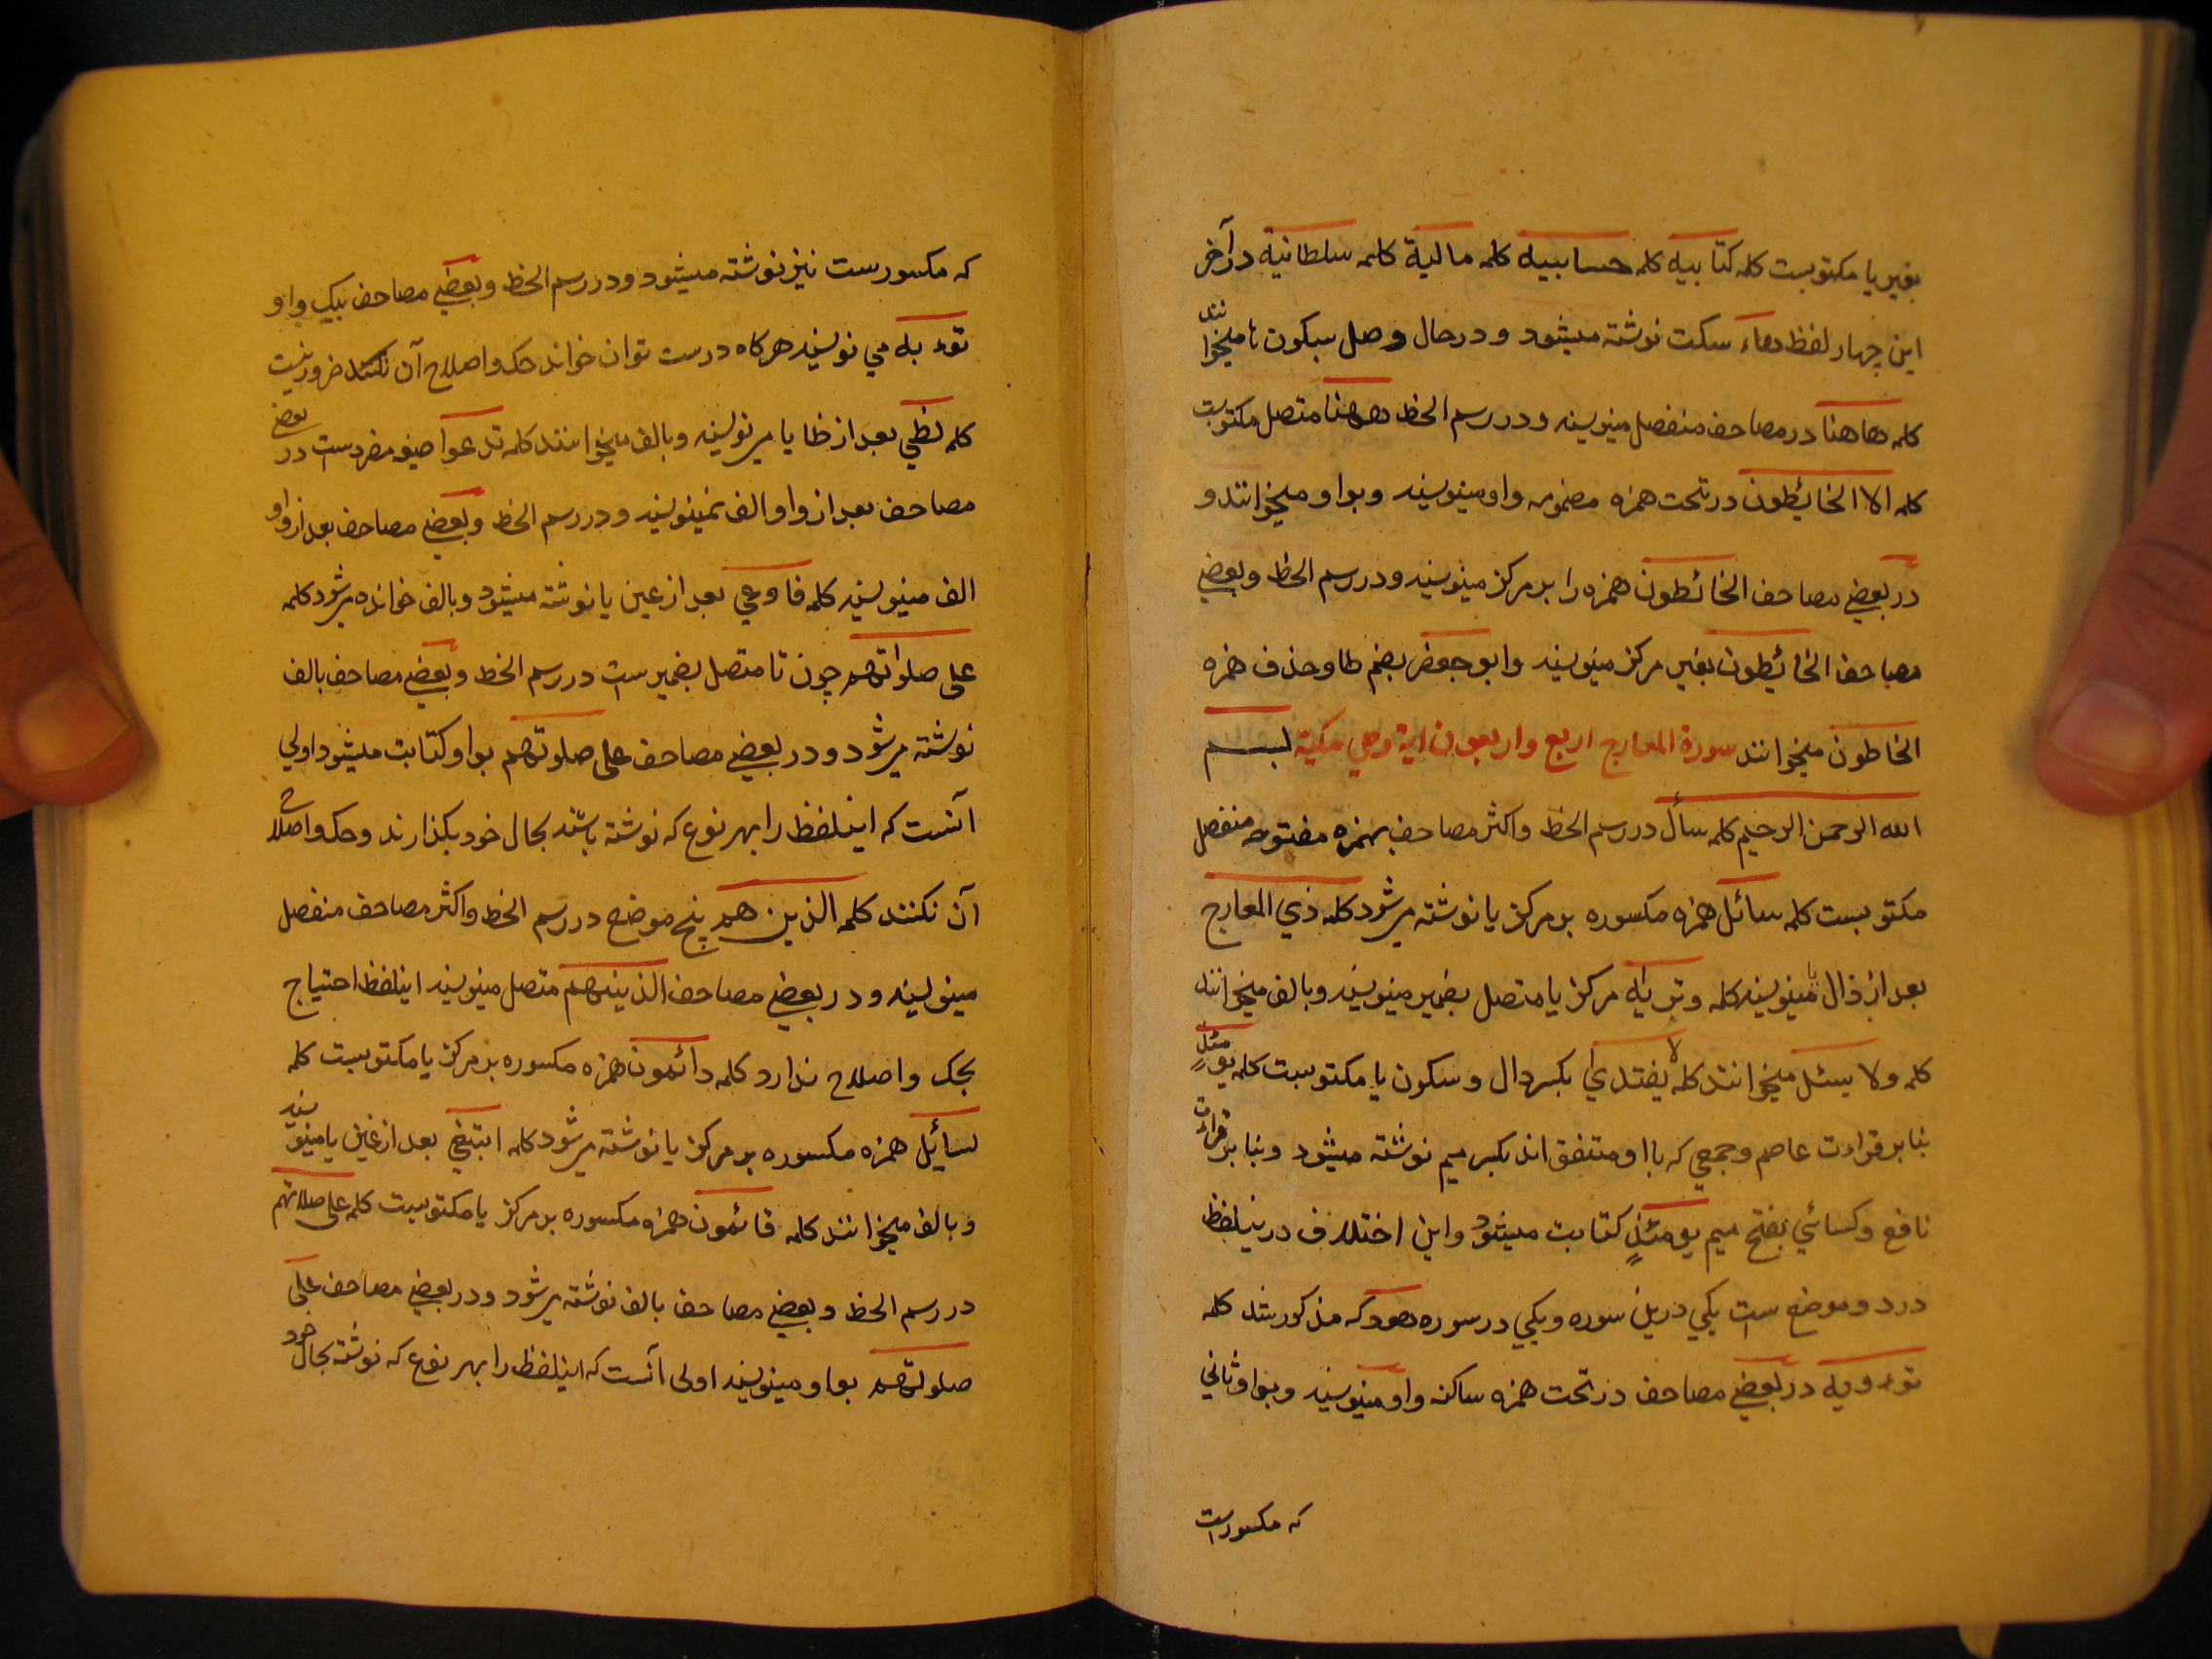 بغیر یا مکتوبست کله کتابیه کله حسابیه کلمه مالیة کلمه سلطانیة در آخر
این چهار لفظ هاء سکت نوشته میشود و در حال وصل بسکون تا میخوانند
کلمه هاهنا در مصاحف منفصل مینویسند و در رسم الخط ههنا متصل مکتوبست
کلمه الا الخائطون در تحت همزه مضمومه واو مینویسند و بواو میخوانند و
در بعضي مصاحف الخائطون همزه را بر مرکز مینویسند و در رسم الخط و بعضي
مصاحف الخائطون بغیر مرکز مینویسند وابو جعفر بضم طا و حذف همزه
الخاطون میخوانند سورة المعارج اربع واربعون ایة وهي مکیة بسم
الله الرحمن الرحیم کلمه سأل در رسم الخط و اکثر مصاحف بهمزه مفتوحه منفصل
مکتوبست کلمه سائل همزه مکسوره بر مرکز یا نوشته میشود کله ذي المعارج
بعد از ذال یا مینویسند کلمه و تریه مرکز یا متصل بضمیر مینویسند و بالف میخوانند
کلمه ولا یسئل میخوانند کله لا یفتدي بکسر دال و سکون یا مکتوبست کلمه یومئذٍ
بنا بر قراءت عاصم و جمعي که با او متفق اند بکسر میم نوشته میشود و بنا بر قراءت
نافع و کسائي بفتح میم یومئذٍ کتابت میشود و این اختلاف در ینلفظ
در دو موضع است یکي درین سوره و یکي در سوره هود که مذکور شد کلمه
تؤویه در بعضي مصاحف در تحت همزه ساکنه واو مینویسند و بواو ثاني
که مکسور است
که مکسورست نیز نوشته میشود و در رسم الخط و بعضي مصاحف بیک واو
توء یه مي نویسند هرکاه درست توان خواند حک و اصلاح آن نکنند ضرور نیست
کلمه لظي بعد از ظا یا مینویسند و بالف میخوانند کلمه تدعوا صیغه مفردست در بعضي
مصاحف بعد از واو الف نمینویسند و در رسم الخط و بعضي مصاحف بعد از واو
الف مینویسند کلمه فاوعي بعد از عین یا نوشته میشود و بالف خوانده میشود کلمه
علی صلواتهم چون تا متصل بضمیرست در رسم الخط و بعضي مصاحف بالف
نوشته میشود و در بعضي مصاحف علی صلوتهم بواو کتابت میشود اولي
آنست که اینلفظ را بهر نوع که نوشته باشند بحال خود بکذارند و حک و اصلاح
آن نکنند کلمه الذین هم پنج موضع در رسم الخط و اکثر مصاحف منفصل
مینویسند و در بعضي مصاحف الذینهم متصل مینویسند اینلفظ احتیاج
بحک و اصلاح ندارد کلمه دائمون همزه مکسوره بر مرکز یا مکتوبست کلمه
لسائیل همزه مکسوره بر مرکز یا نوشته میشود کلمه ابتغي بعد از غین یا مینویسند
و بالف میخوانند کلمه قائمون همزه مکسوره بر مرکز یا مکتوبست کلمه علی صلاتهم
در رسم الخط و بعضي مصاحف بالف نوشته میشود و در بعضي مصاحف علی
صلوتهم بواو مینویسند اولی آنست که اینلفظ را بهر نوع که نوشته بحال خود